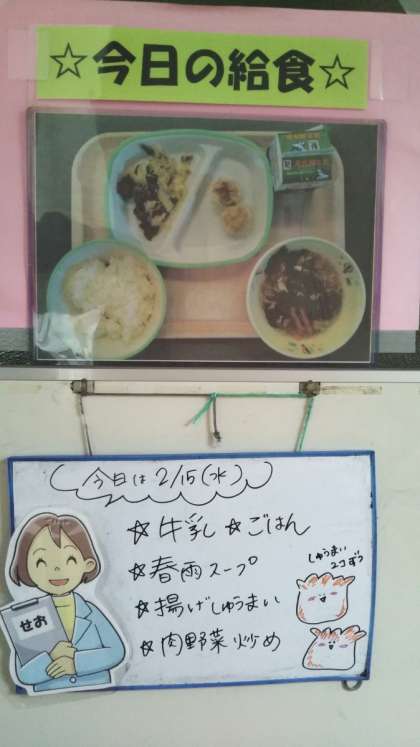 ☆今日の給食☆
今日は 2/15(水)
☆牛乳 ☆ごはん
☆春雨スープ
☆揚げしゅうまい
☆肉野菜炒め
しゅうまい
2コずつ
せお